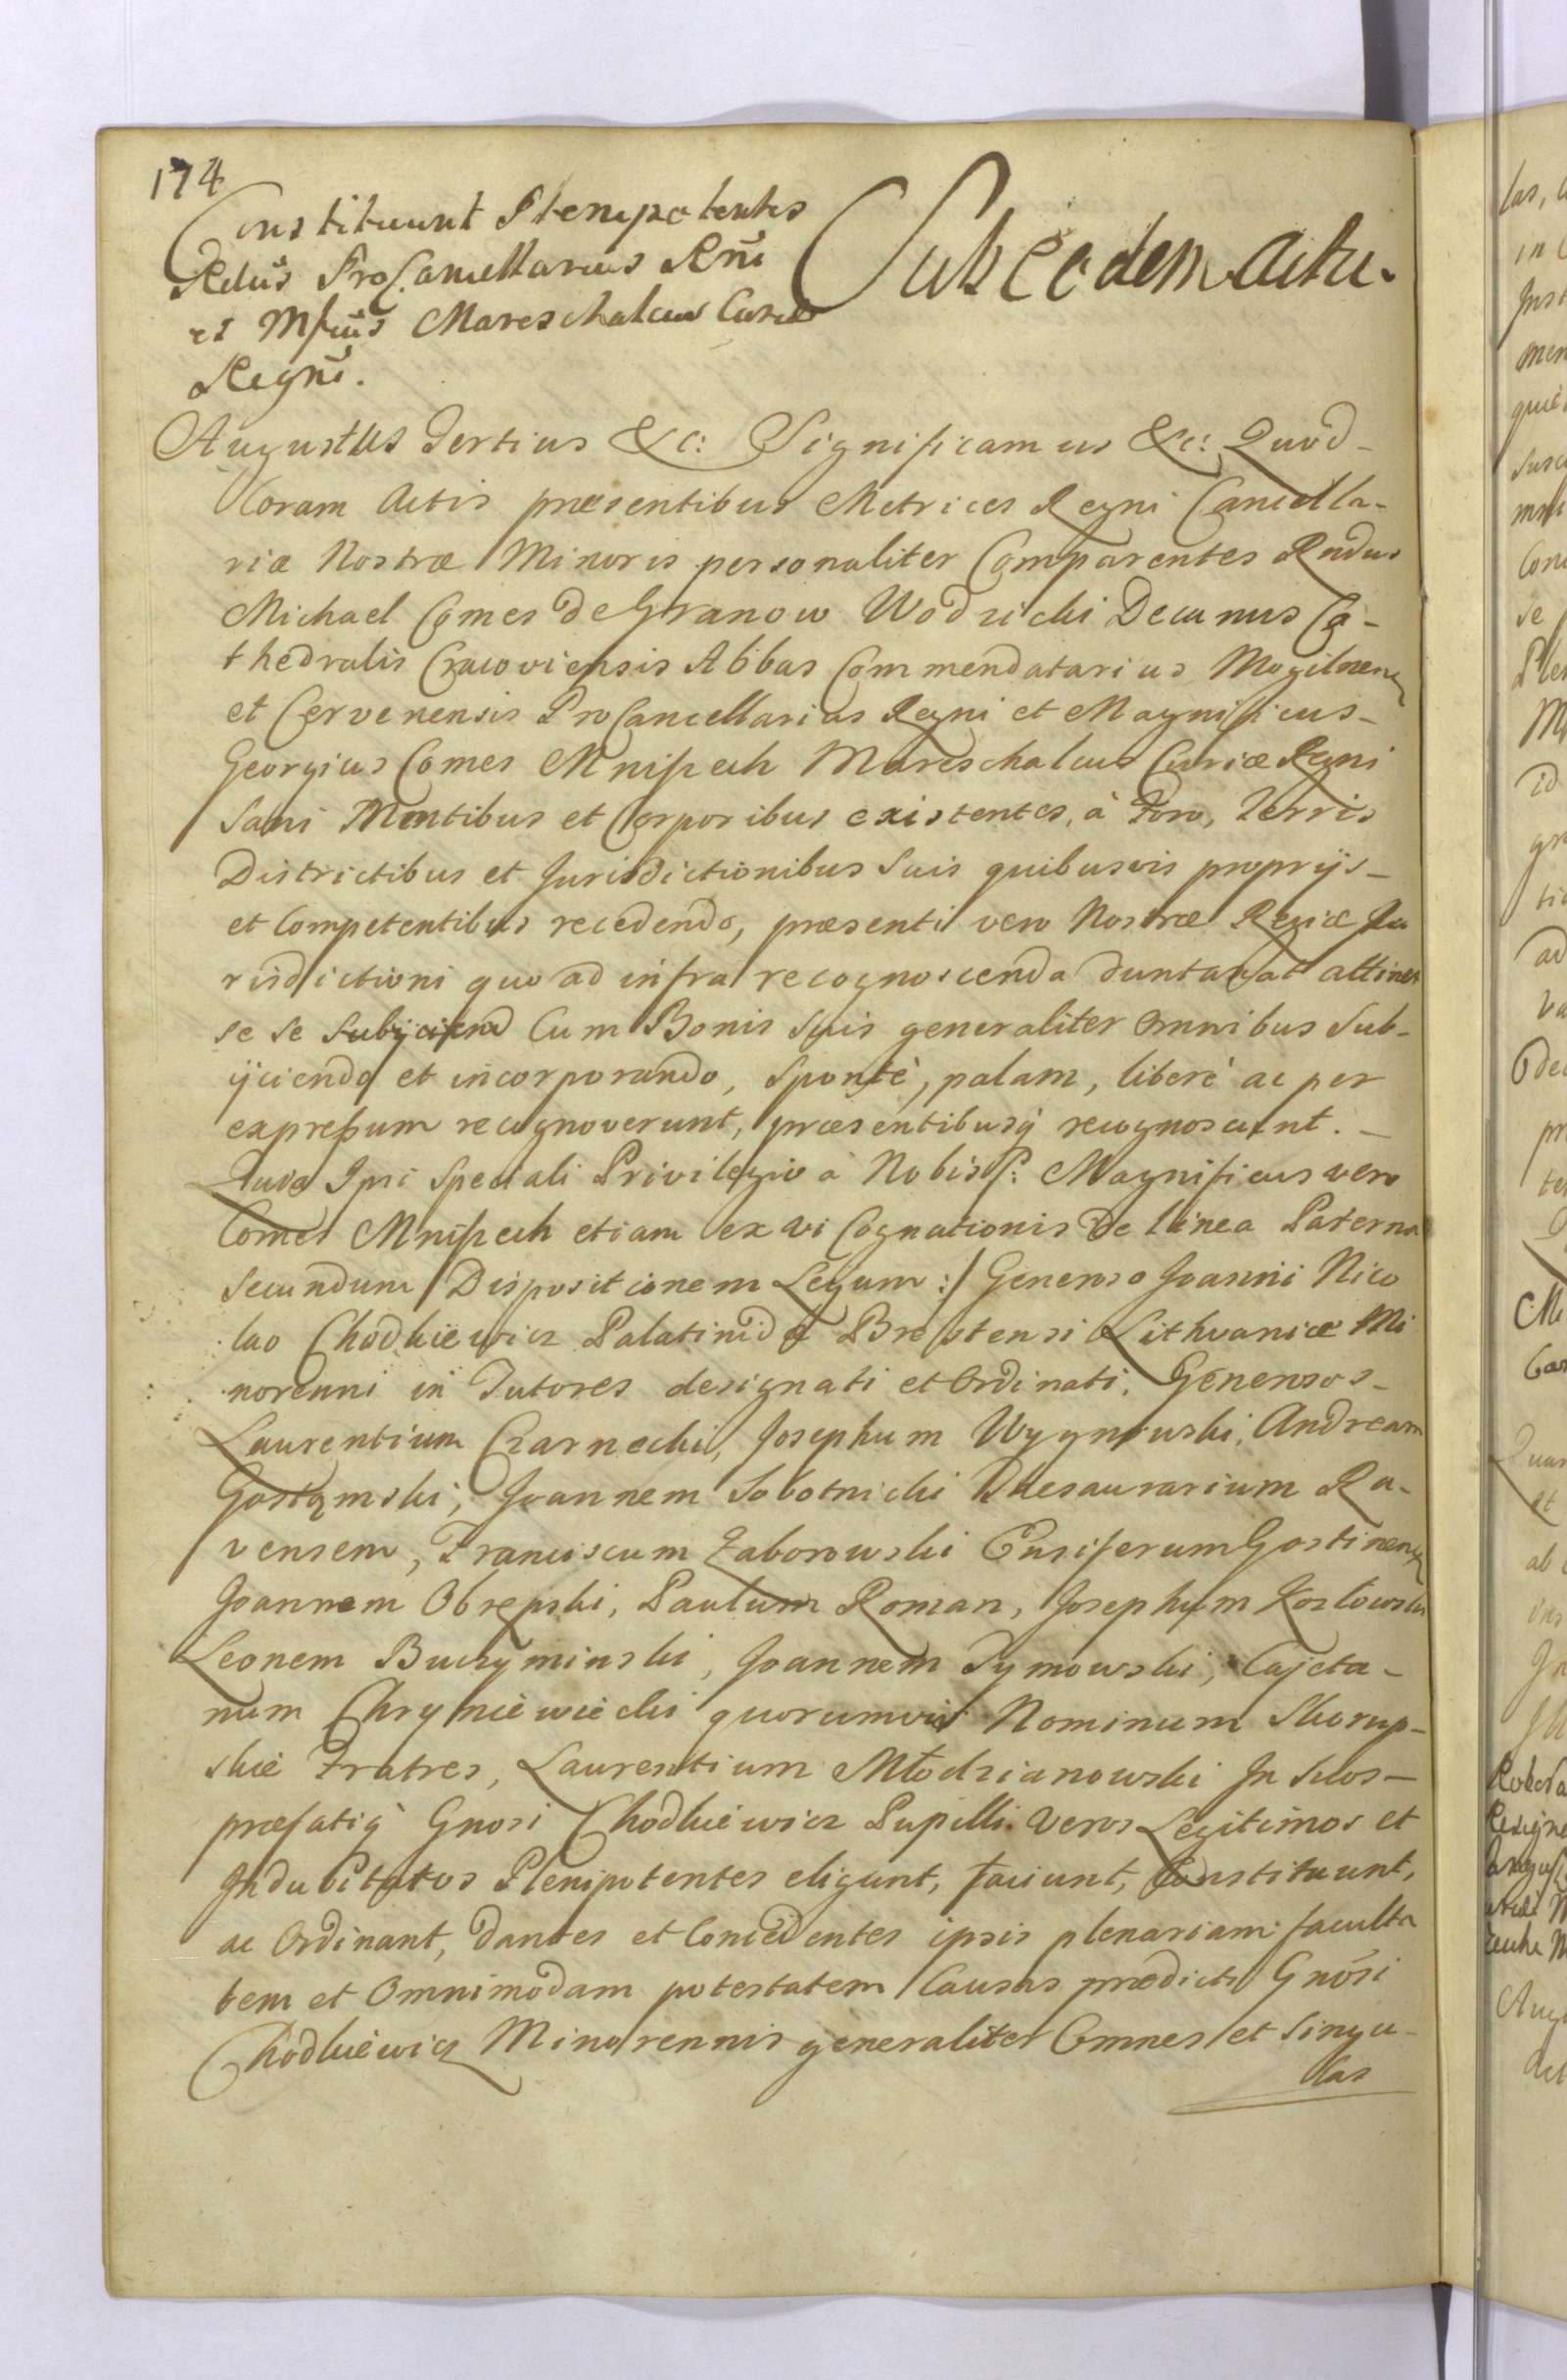 174
Constituunt Plenipotentes
Rdus ProCancellarius Rni
et Mfcus Mareschalcus Curiæ
Regni.
Sub eodem actu.
Augustus Tertius &c: Significamus &c: Quod
Coram Actis præsentibus Metrices Regni Cancella-
riæ Nostræ Minoris personaliter Comparentes Rndus
Michael Comes de Granow Wodzicki Decanus Ca-
thedralis Cracoviensis Abbas Commendatarius Mogilnen
et Cervenensis ProCancellarius Regni et Magnificus
Georgius Comes Mniszech Mareschalcus Curiæ Regni
Sani Mentibus et Corporibus existentes, à Foro, Terris
Districtibus et Jurisdictionibus Suis quibusvis proprijs
et Competentibus recedendo, præsenti vero Nostræ Regiæ Ju
risdictioni quo ad infra recognoscenda duntaxat attinet
se se Subijciend Cum Bonis Suis generaliter Omnibus Sub-
ijciendo et incorporando, Sponte, palam, liberè ac per
expressum recognoverunt, præsentibusq recognoscunt.
Quia Ipsi Speciali Privilegio à Nobis /: Magnificus vero
Comes Mniszech etiam ex vi Cognationis De linea Paterna
Secundum Dispositionem Legum :/ Generoso Joanni Nico
lao Chodkiewicz Palatinidæ Brestensi Lithvaniæ Mi
norenni in Tutores designati et Ordinati, Generosos
Laurentium Czarnecki, Josephum Wyganowski, Andream
Gostomski, Joannem Sobotnicki Thesaurarium Ra-
vensem, Franciscum Zaborowski Ensiferum Gostinen
Joannem Obrępski, Paulum Roman, Josephum Kozłowski
Leonem Buczyminski, Joannem Tymowski, Cajeta-
num Chryniewiecki quorumvis Nominum Skorup-
skie Fratres, Laurentium Młodzianowski In Suos
præfatiq Gnosi Chodkiewicz Pupilli Veros Legitimos et
Indubitatos Plenipotentes eligunt, faciunt, Constituunt,
ac Ordinant, Dantes et Concedentes ipsis plenariam faculta
tem et Omnimodam potestatem Causas prædicti Gnosi
Chodkiewicz Minorennis generaliter Omnes et Singu-
las